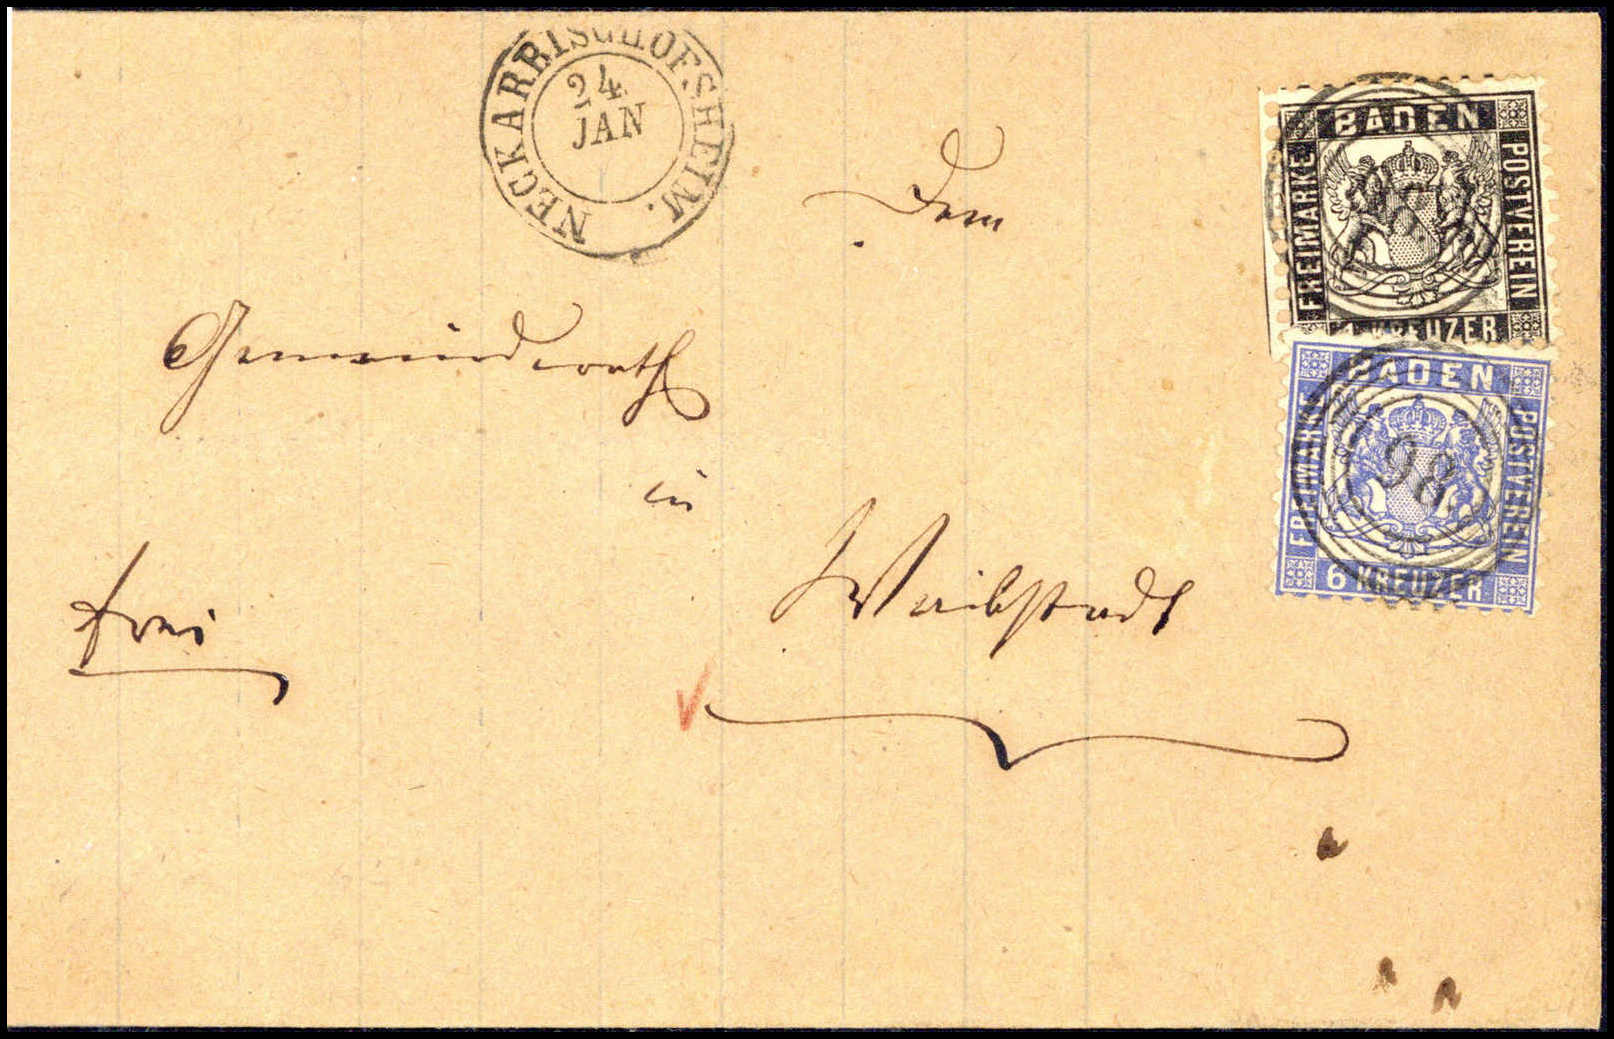 NECKARBISCHOFSHEIM.
24
JAN
Dem
Gemeinderath
in
Waibstadt
frei
BADEN
FREIMARKE
POSTVEREIN
1 KREUZER.
BADEN
FREIMARKE
POSTVEREIN
6 KREUZER
98